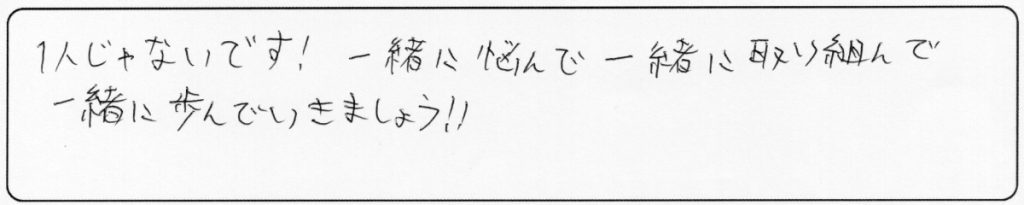 1人じゃないです! 一緒に悩んで一緒に取り組んで
一緒に歩んでいきましょう!!